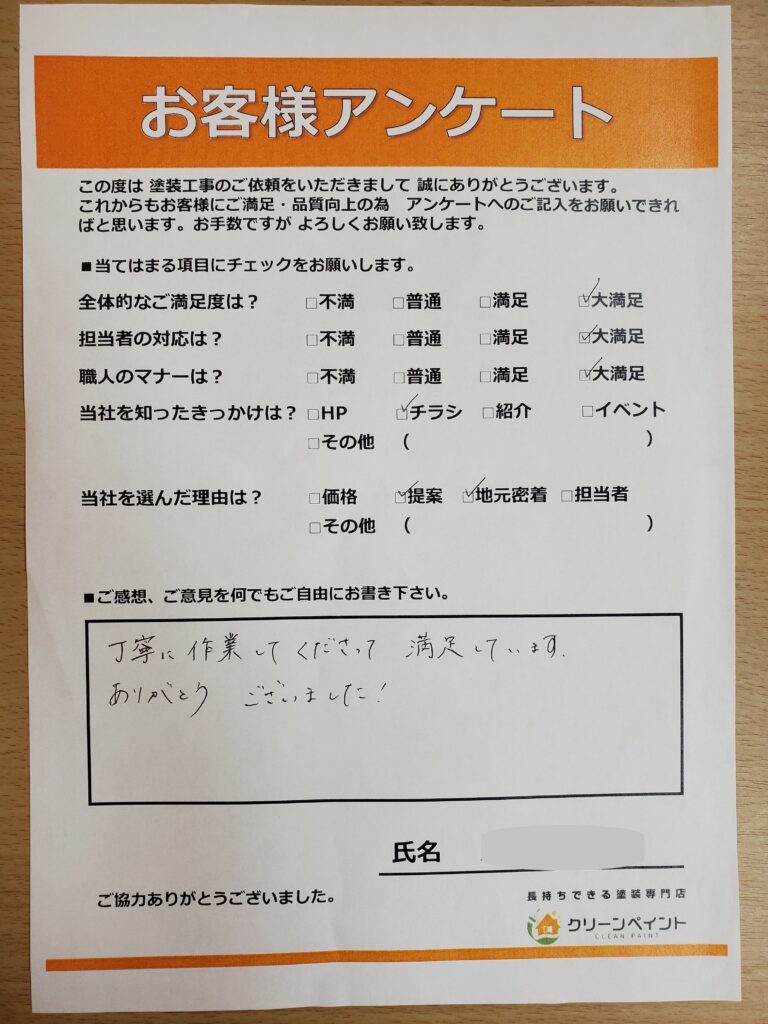 お客様アンケート
この度は 塗装工事のご依頼をいただきまして 誠にありがとうございます。
これからもお客様にご満足・品質向上の為　アンケートへのご記入をお願いできれ
ばと思います。お手数ですが よろしくお願い致します。
■当てはまる項目にチェックをお願いします。
全体的なご満足度は？ □不満 □普通 □満足 ☑大満足
担当者の対応は？ □不満 □普通 □満足 ☑大満足
職人のマナーは？ □不満 □普通 □満足 ☑大満足
当社を知ったきっかけは？ □HP ☑チラシ □紹介 □イベント
□その他 （ ）
当社を選んだ理由は？ □価格 ☑提案 ☑地元密着 □担当者
□その他 （ ）
■ご感想、ご意見を何でもご自由にお書き下さい。
丁寧に作業してくださって 満足しています.
ありがとう ございました!
氏名
ご協力ありがとうございました。
長持ちできる塗装専門店
クリーンペイント
CLEAN PAINT